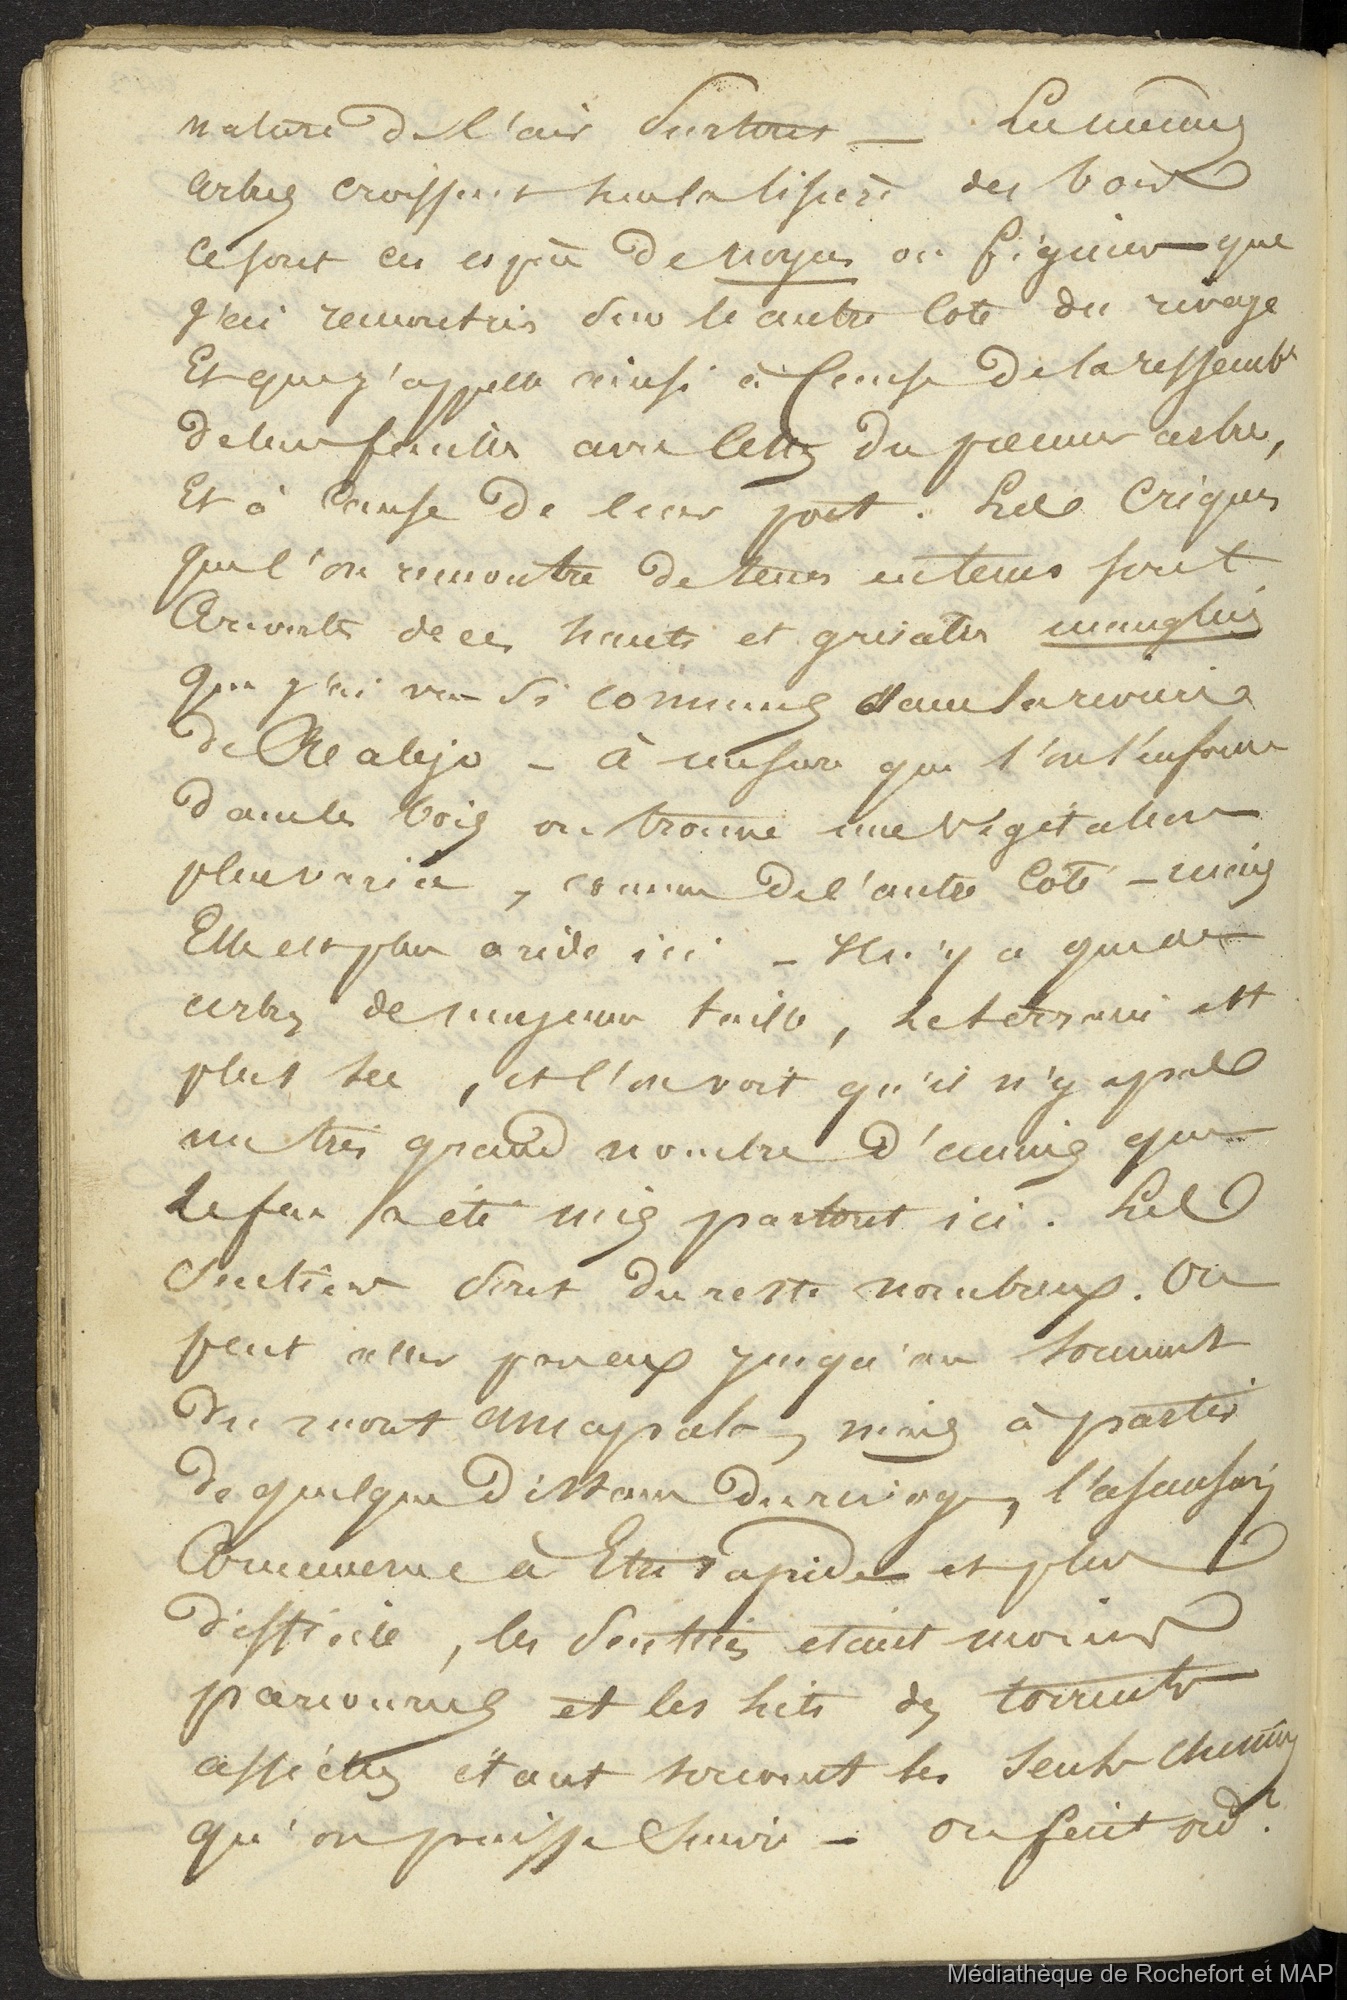 nature de l'air surtout — Les mêmes
arbres croissent sur la lisière des bois
ce sont ces espèces de noyers ou figuiers que
j'ai rencontrés sur le autre coté du rivage
Et que j'appelle ainsi à cause de la ressembce
de leurs feuilles avec celles du premier arbre,
Et à cause de leur port. Les Criques
que l'on rencontre de tems en tems sont
couverts de ces hauts et grisatres mangliers
que j'ai vu si communs dans la rivière
de Realejo — à mesure que l'on s'enfonce
dans les bois on trouve une végétation
plus variée, comme de l'autre coté — mais
Elle est plus aride ici — Il n'y a que des
arbres de moyenne taille, le terrain est
plus sec, et l'on voit qu'il n'y a pas
un très grand nombre d'années que
le feu a été mis partout ici. Les
sentiers sont du reste nombreux. On
peut aller par eux jusqu'au sommet
du mont Amapala, mais à partir
de quelque distance du rivage, l'ascension
Commence à Etre rapide et plus
difficile, les sentiers etant moins
parcourus et les lits des torrents
assèchés étant souvent les seuls chemins
qu'on puisse suivre — on fait ordt.
Médiathèque de Rochefort et MAP